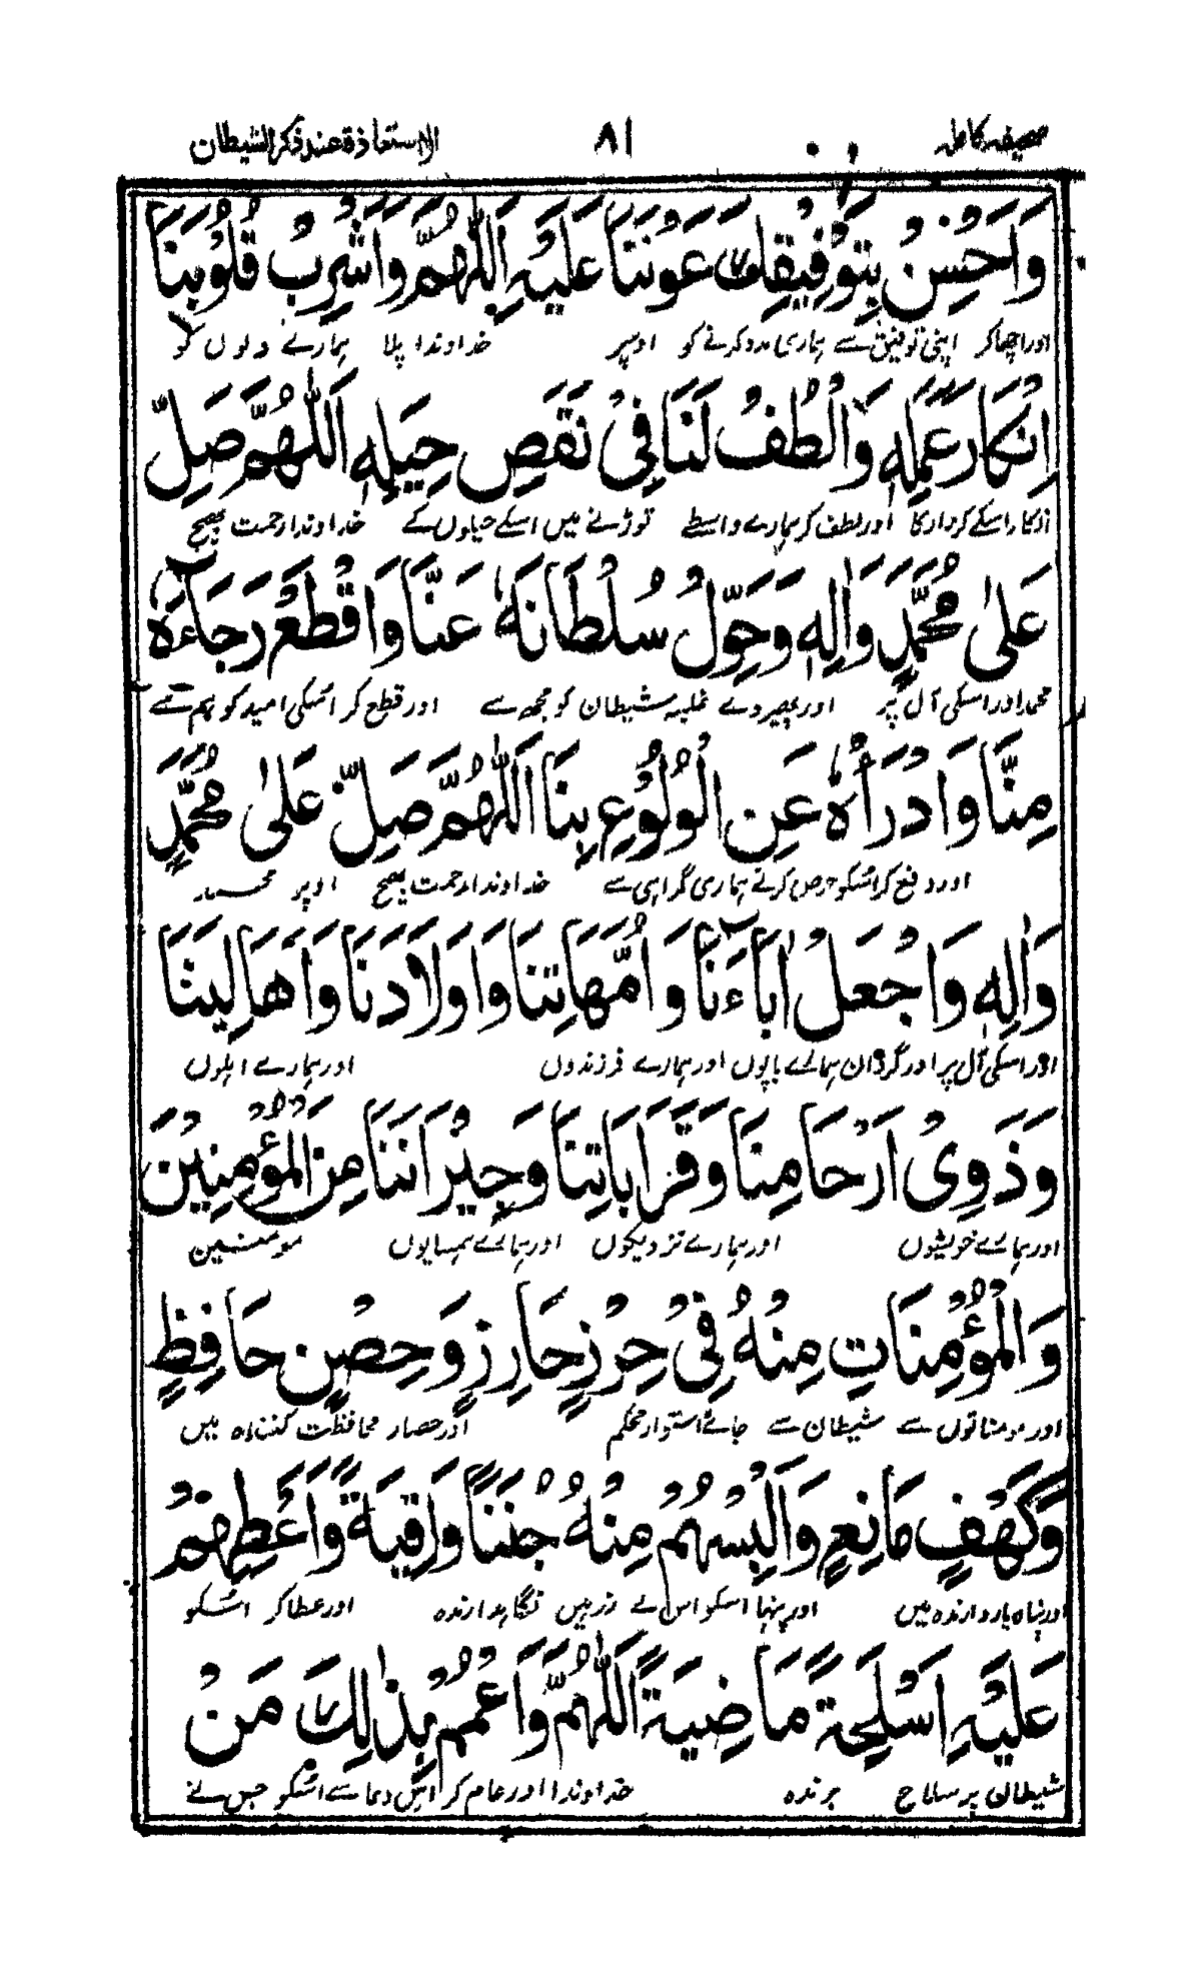 صحیفہ کاملہ ۸۱ الاستعاذۃ عند ذکر الشیطان
وَاَحْسِنْ بِتَوْفِیْقِكَ عَوْنَنَا عَلَیْهِ اَللّٰهُمَّ وَاَشْرِبْ قُلُوْبَنَا
اور اچھا کر اپنی توفیق سے ہماری مدد کرنے کو اوپر خداوندا پلا ہمارے دلوں کو
اِنْكَارَ عَمَلِهٖ وَالْطُفْ لَنَا فِیْ نَقْصِ حِیَلِهٖ اَللّٰهُمَّ صَلِّ
انکار اسکے کردار کا اور لطف کر ہمارے واسطے توڑنے میں اسکے حیلوں کے خداوندا رحمت بھیج
عَلٰی مُحَمَّدٍ وَاٰلِهٖ وَحَوِّلْ سُلْطَانَهٗ عَنَّا وَاقْطَعْ رَجَآءَهٗ
محمد اور اسکی آل پر اور پھیر دے غلبہ شیطان کو مجھ سے اور قطع کر اسکی امید کو ہم سے
مِنَّا وَادْرَأْهُ عَنِ الْوُلُوْعِ بِنَا اَللّٰهُمَّ صَلِّ عَلٰی مُحَمَّدٍ
اور دفع کر اسکو حرص کرنے ہماری گمراہی سے خداوندا رحمت بھیج اوپر محمد
وَاٰلِهٖ وَاجْعَلْ اٰبَآءَنَا وَاُمَّهَاتِنَا وَاَوْلَادَنَا وَاَهَالِیَنَا
اور اسکی آل پر اور گردان ہمارے باپوں اور ہمارے فرزندوں اور ہمارے اہلوں
وَذَوِیْ اَرْحَامِنَا وَقَرَابَاتِنَا وَجِیْرَانَنَا مِنَ الْمُؤْمِنِیْنَ
اور ہمارے خویشوں اور ہمارے نزدیکوں اور ہمارے ہمسایوں مومنین
وَالْمُؤْمِنَاتِ مِنْهُ فِیْ حِرْزٍ حَارِزٍ وَحِصْنٍ حَافِظٍ
اور مومناتوں سے شیطان سے جائے استوار محکم اور حصار محافظت کنندہ میں
وَكَهْفٍ مَانِعٍ وَاَلْبِسْهُمْ مِنْهُ جُنَنًا وَاقِیَةً وَاَعْطِهِمْ
اور پناہ بازدارندہ میں اور پہنا اسکو اس سے زرہیں نگاہدارندہ اور عطا کر اسکو
عَلَیْهِ اَسْلِحَةً مَاضِیَةً اَللّٰهُمَّ وَاعْمُمْ بِذٰلِكَ مَنْ
شیطان پر سلاح برندہ خداوندا اور عام کر اس دعا سے اسکو جس نے